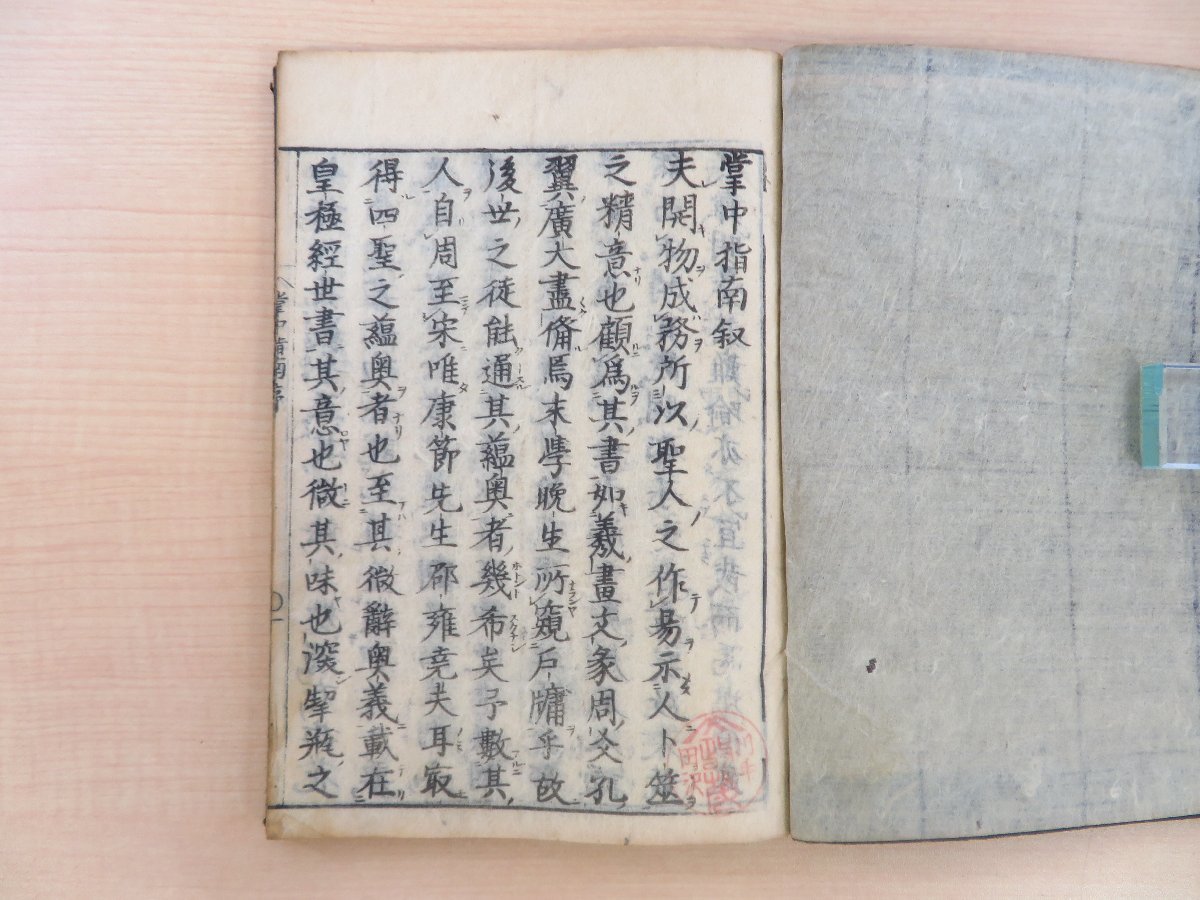 掌中指南叙
夫開物成務所以聖人之作易示人卜筮
之精意也顧爲其書如羲畫文彖周爻孔
翼廣大盡備焉末學晩生所窺戸牖乎故
後世之徒能通其蘊奥者幾希矣予數其
人自周至宋唯康節先生邵雍堯夫耳取
得四聖之蘊奥者也至其微辭奥義載在
皇極經世書其意也微其味也深挈瓶之